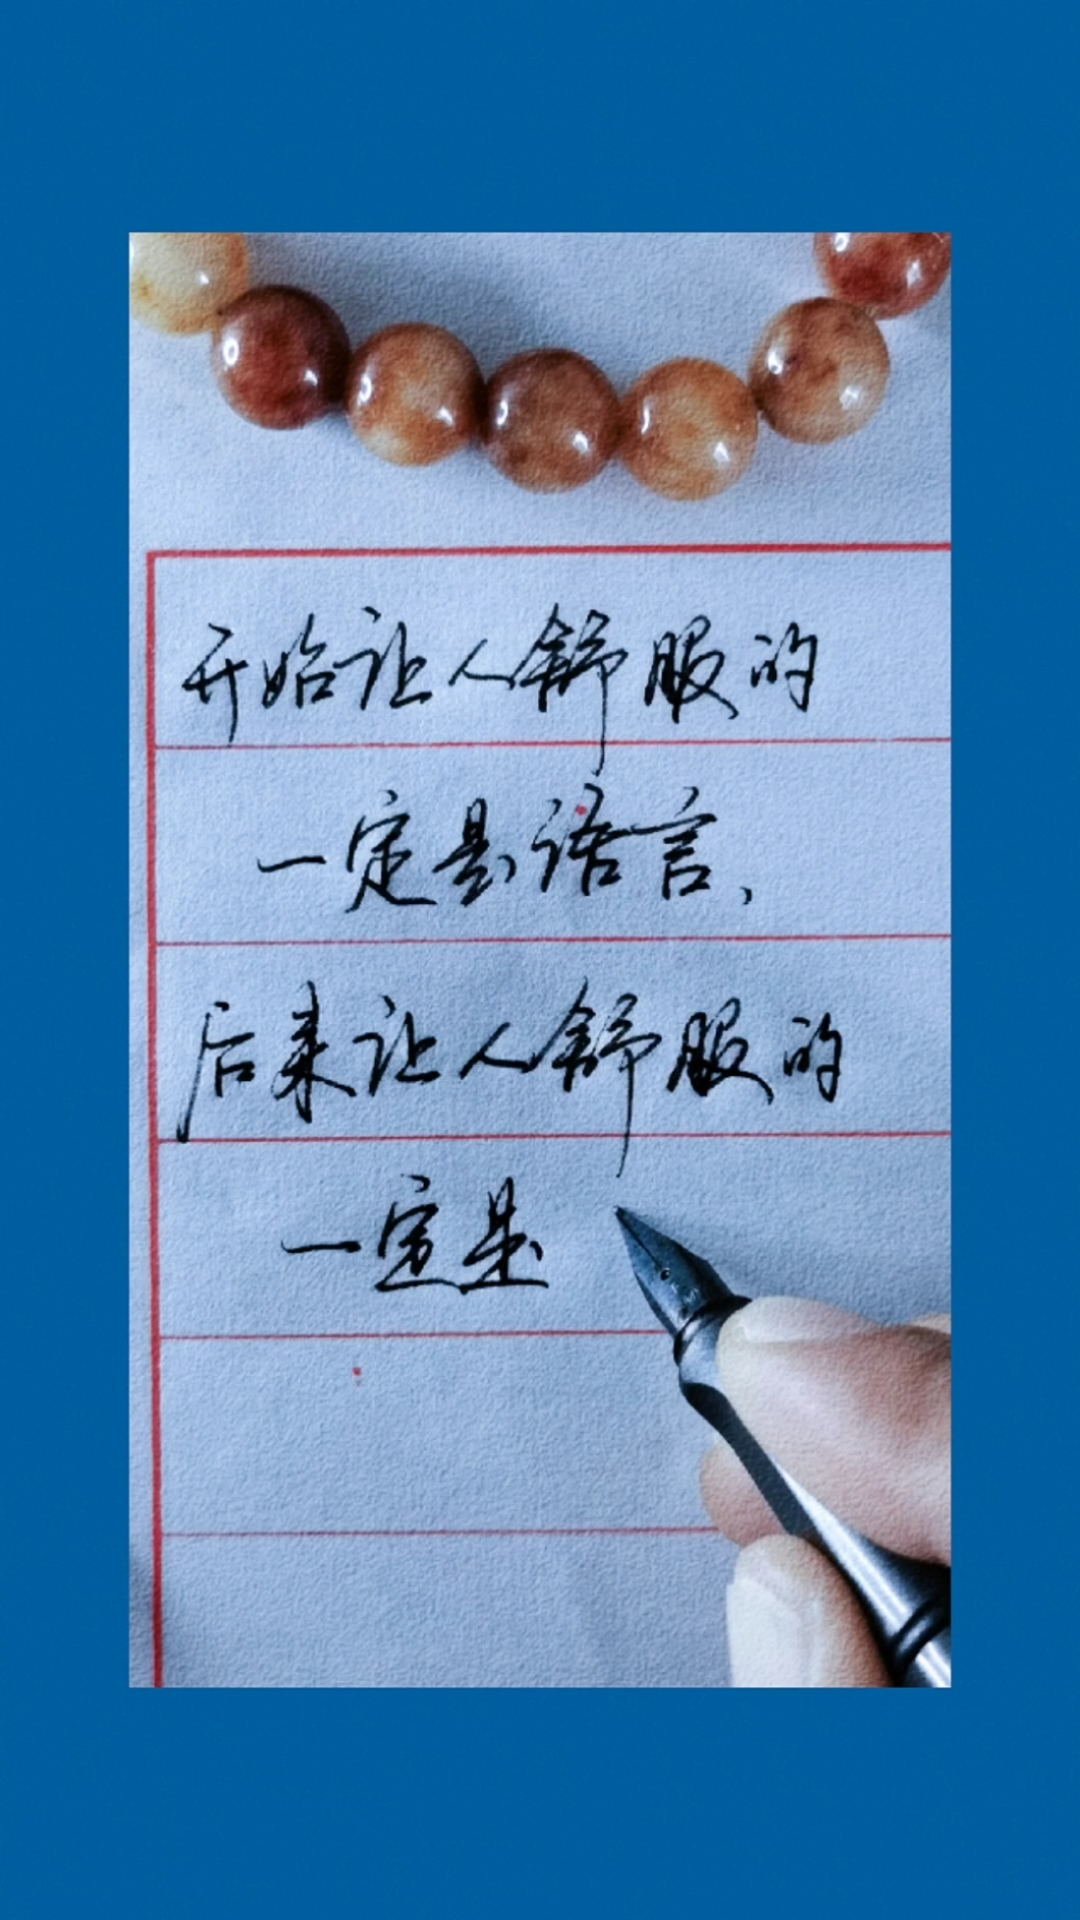 开始让人舒服的
一定是语言、
后来让人舒服的
一定是